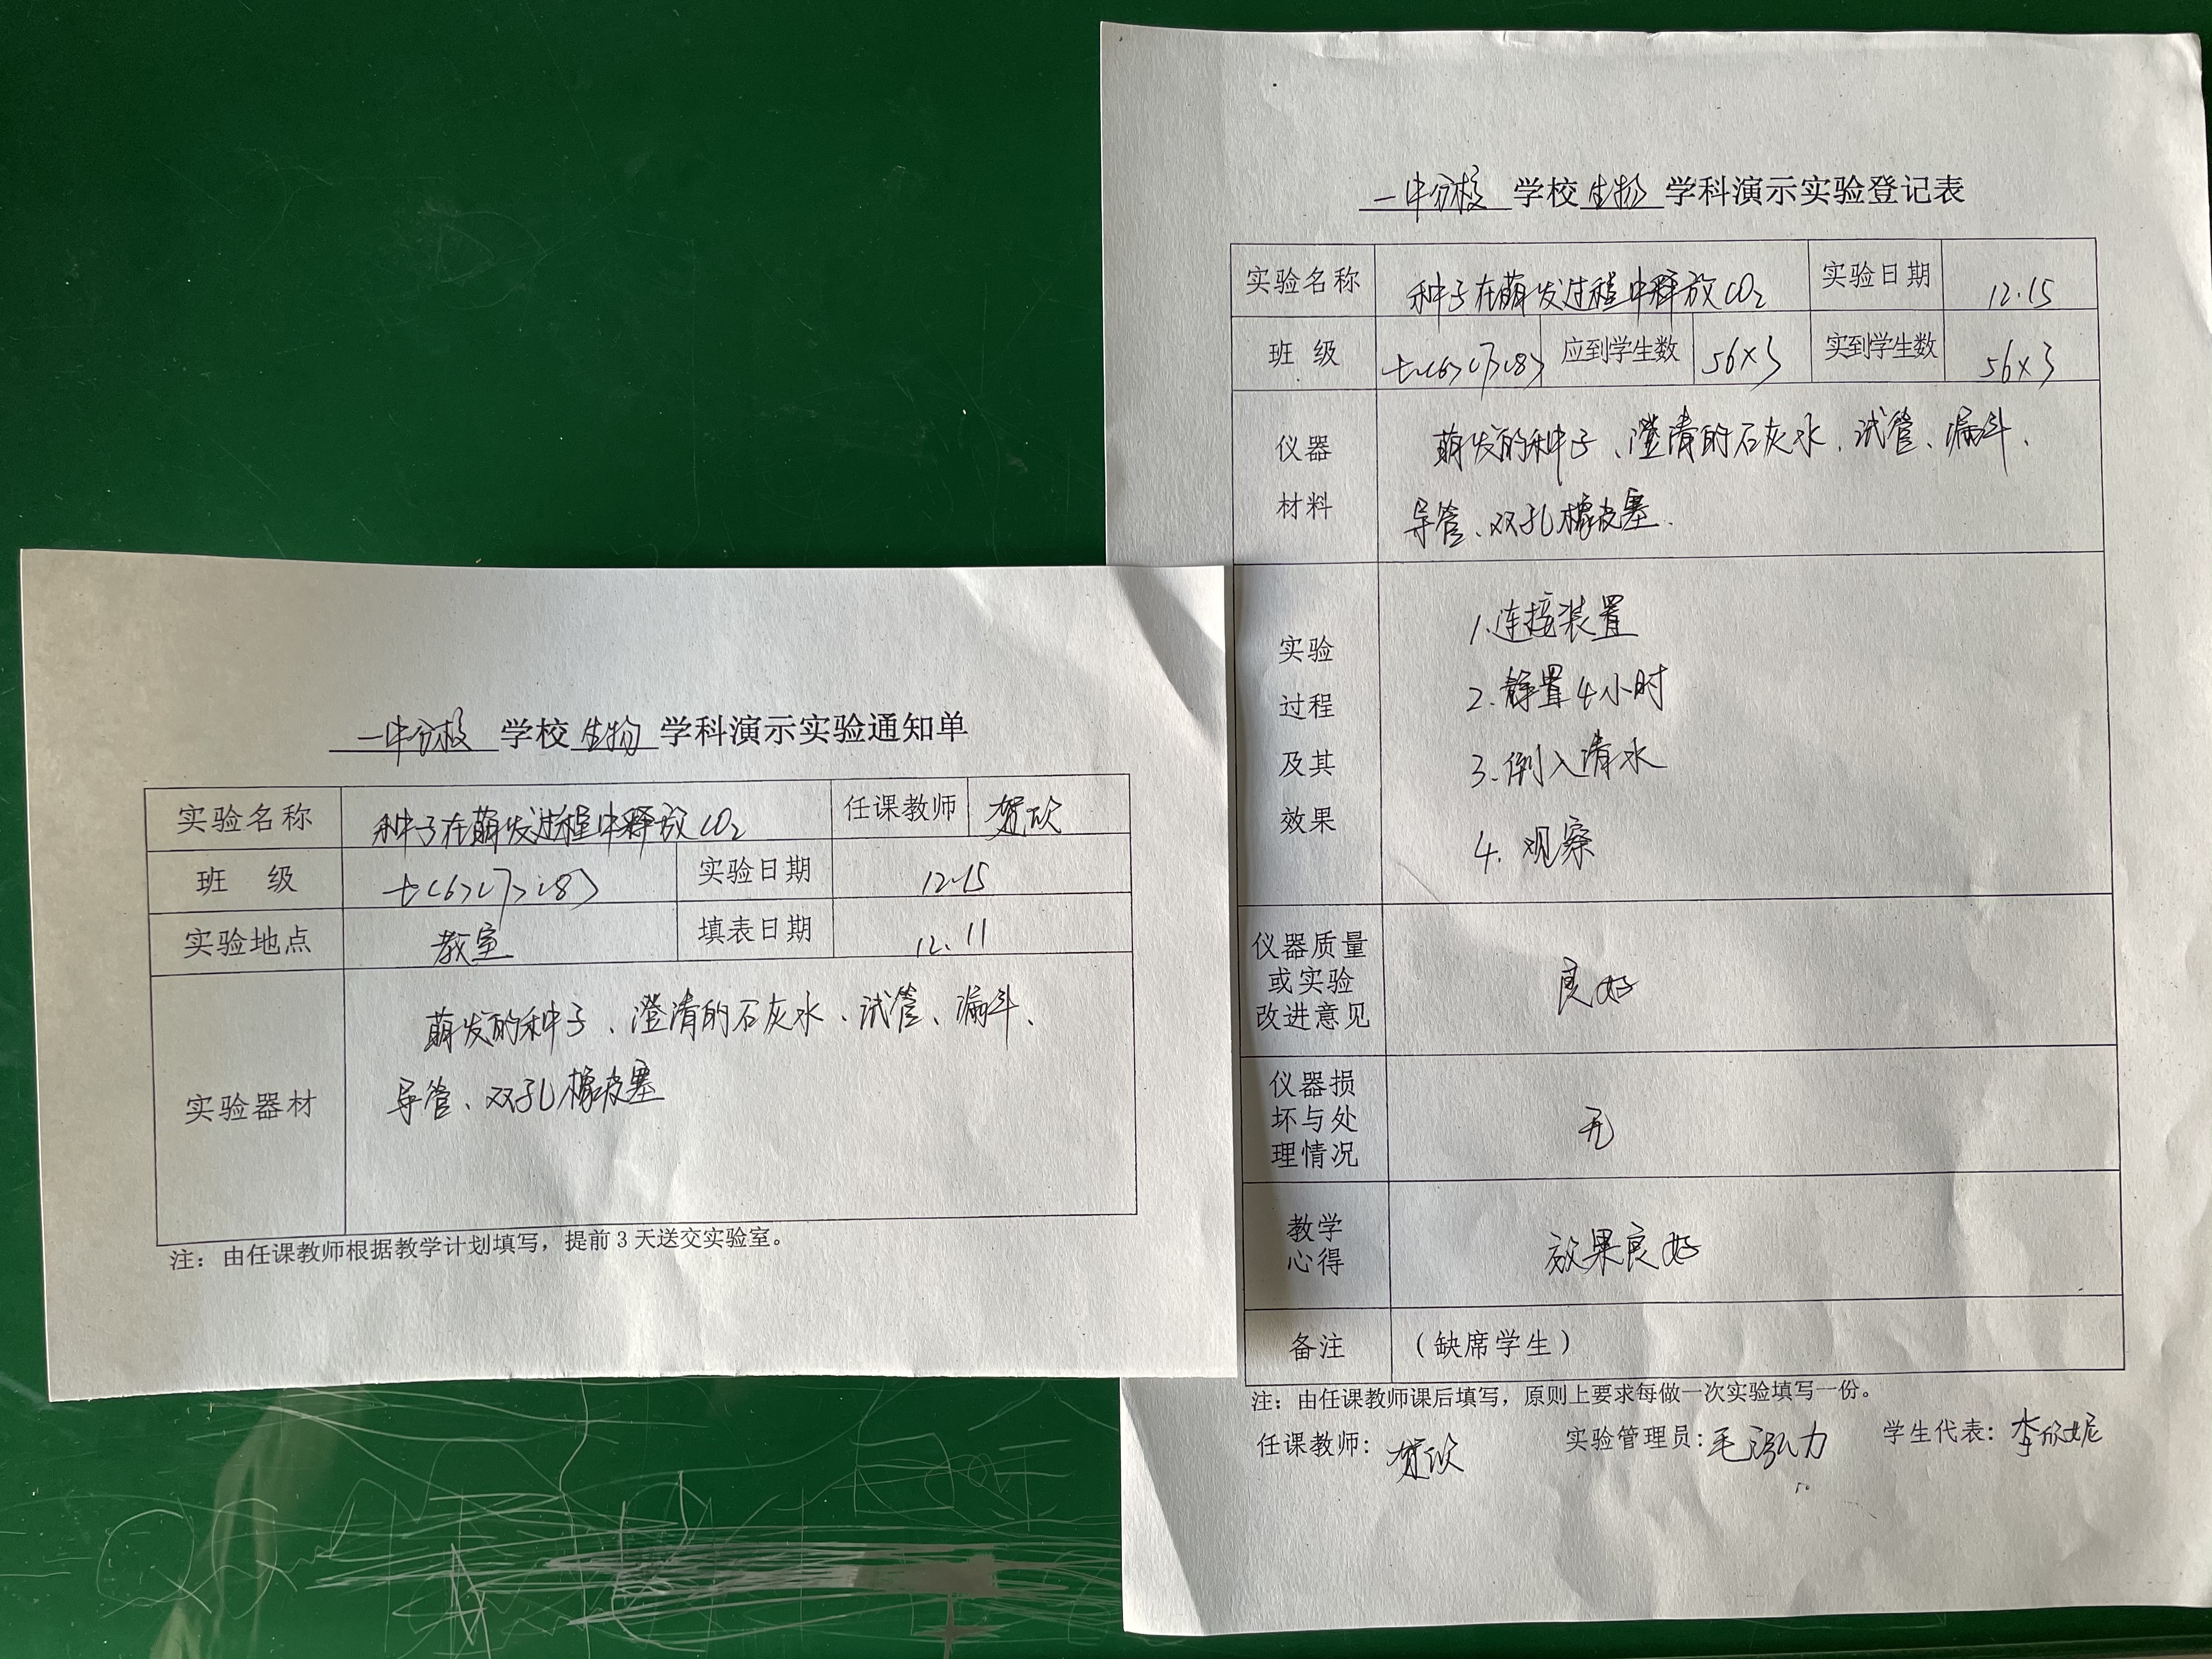 一中分校 学校 生物 学科演示实验通知单
实验名称 种子在萌发过程中释放CO₂ 任课教师 贺欣
班 级 七(6)(7)(8) 实验日期 12.15
实验地点 教室 填表日期 12.11
实验器材 萌发的种子、澄清的石灰水、试管、漏斗、
导管、双孔橡皮塞
注：由任课教师根据教学计划填写，提前3天送交实验室。
一中分校 学校 生物 学科演示实验登记表
实验名称 种子在萌发过程中释放CO₂ 实验日期 12.15
班 级 七(6)(7)(8) 应到学生数 56×3 实到学生数 56×3
仪器
材料
萌发的种子、澄清的石灰水、试管、漏斗、
导管、双孔橡皮塞.
实验
过程
及其
效果
1.连接装置
2.静置4小时
3.倒入清水
4.观察
仪器质量
或实验
改进意见
良好
仪器损
坏与处
理情况
无
教学
心得
效果良好
备注 （缺席学生）
注：由任课教师课后填写，原则上要求每做一次实验填写一份。
任课教师：贺欣 实验管理员：毛泓力 学生代表：李欣妮